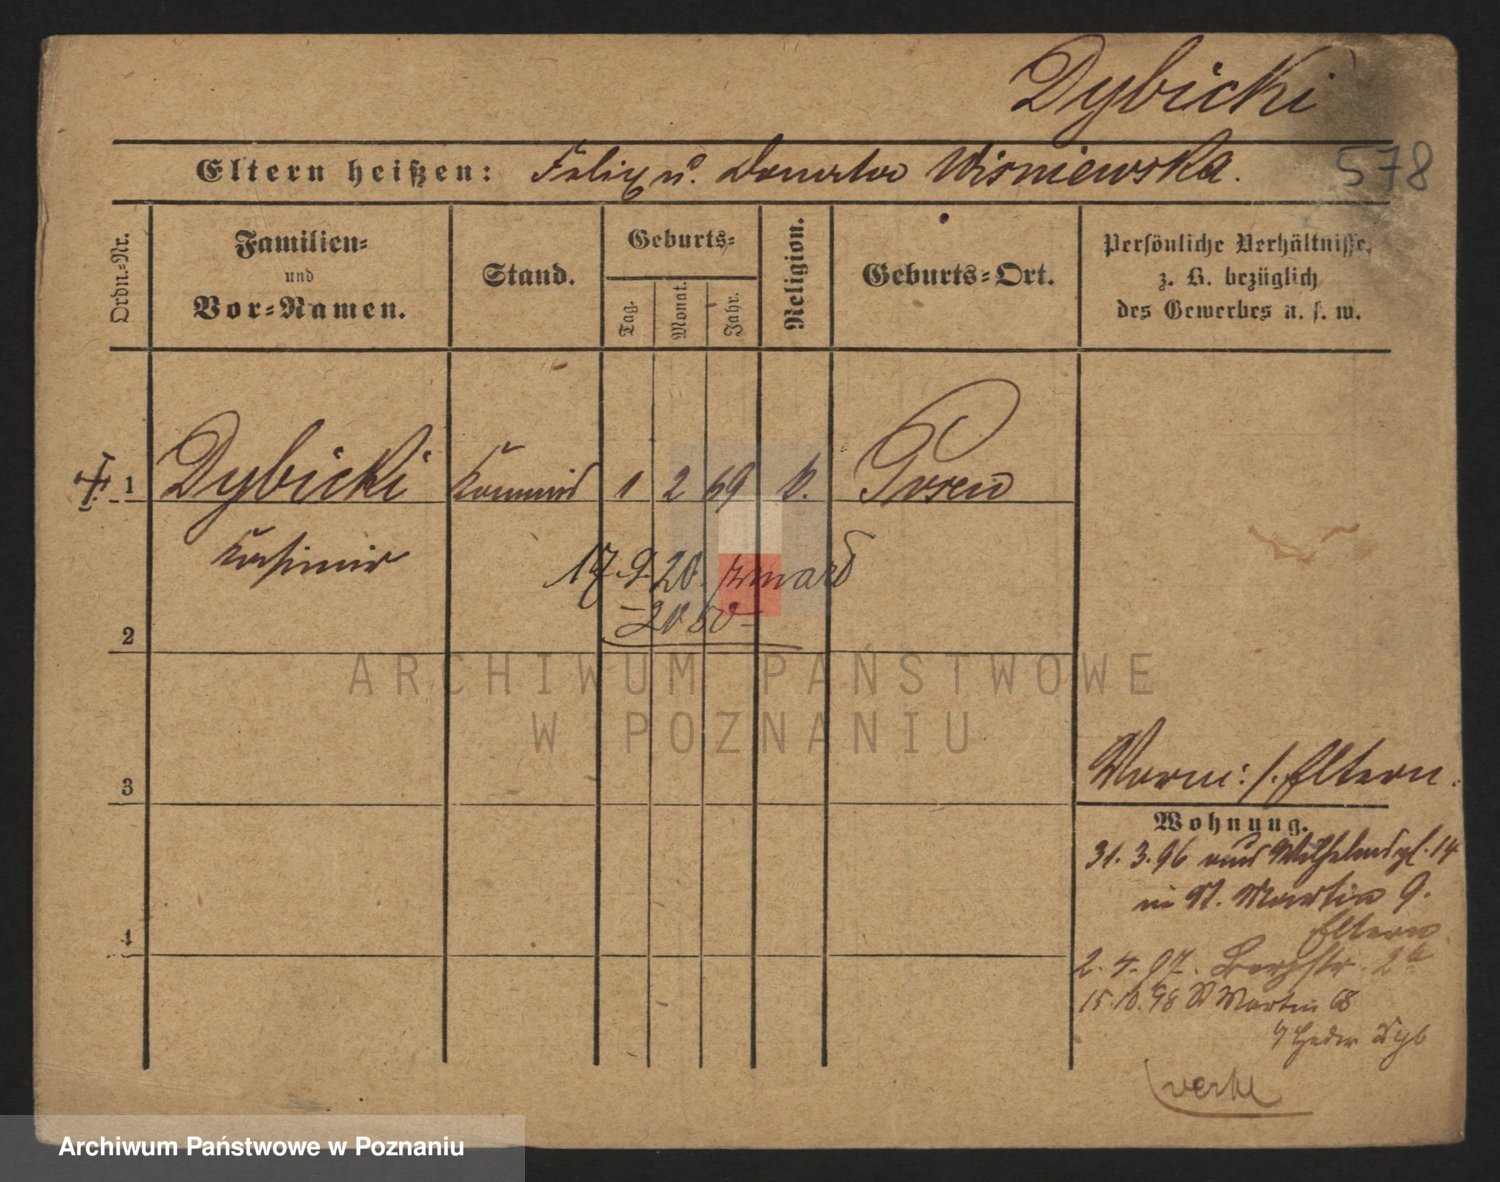 Dybicki
578
Eltern heißen: Felix u. Donata Wisniewska.
Ordn.-Nr.
Familien-
und
Vor-Namen.
Stand.
Geburts-
Tag.
Monat.
Jahr.
Religion.
Geburts-Ort.
Persönliche Verhältnisse,
z. B. bezüglich
des Gewerbes u. s. w.
1 Dybicki Kommis 1 2 69 k. Posen
Kasimir
17. 9. 20.
2
ARCHIWUM PAŃSTWOWE
W POZNANIU
3
4
Eltern.
Wohnung.
31. 3. 96 aus Wilhelmspl. 14
in St. Martin 9.
Eltern
2. 4. 97. Bergstr. 2a
15. 10. 98 St Martin 68
Archiwum Państwowe w Poznaniu